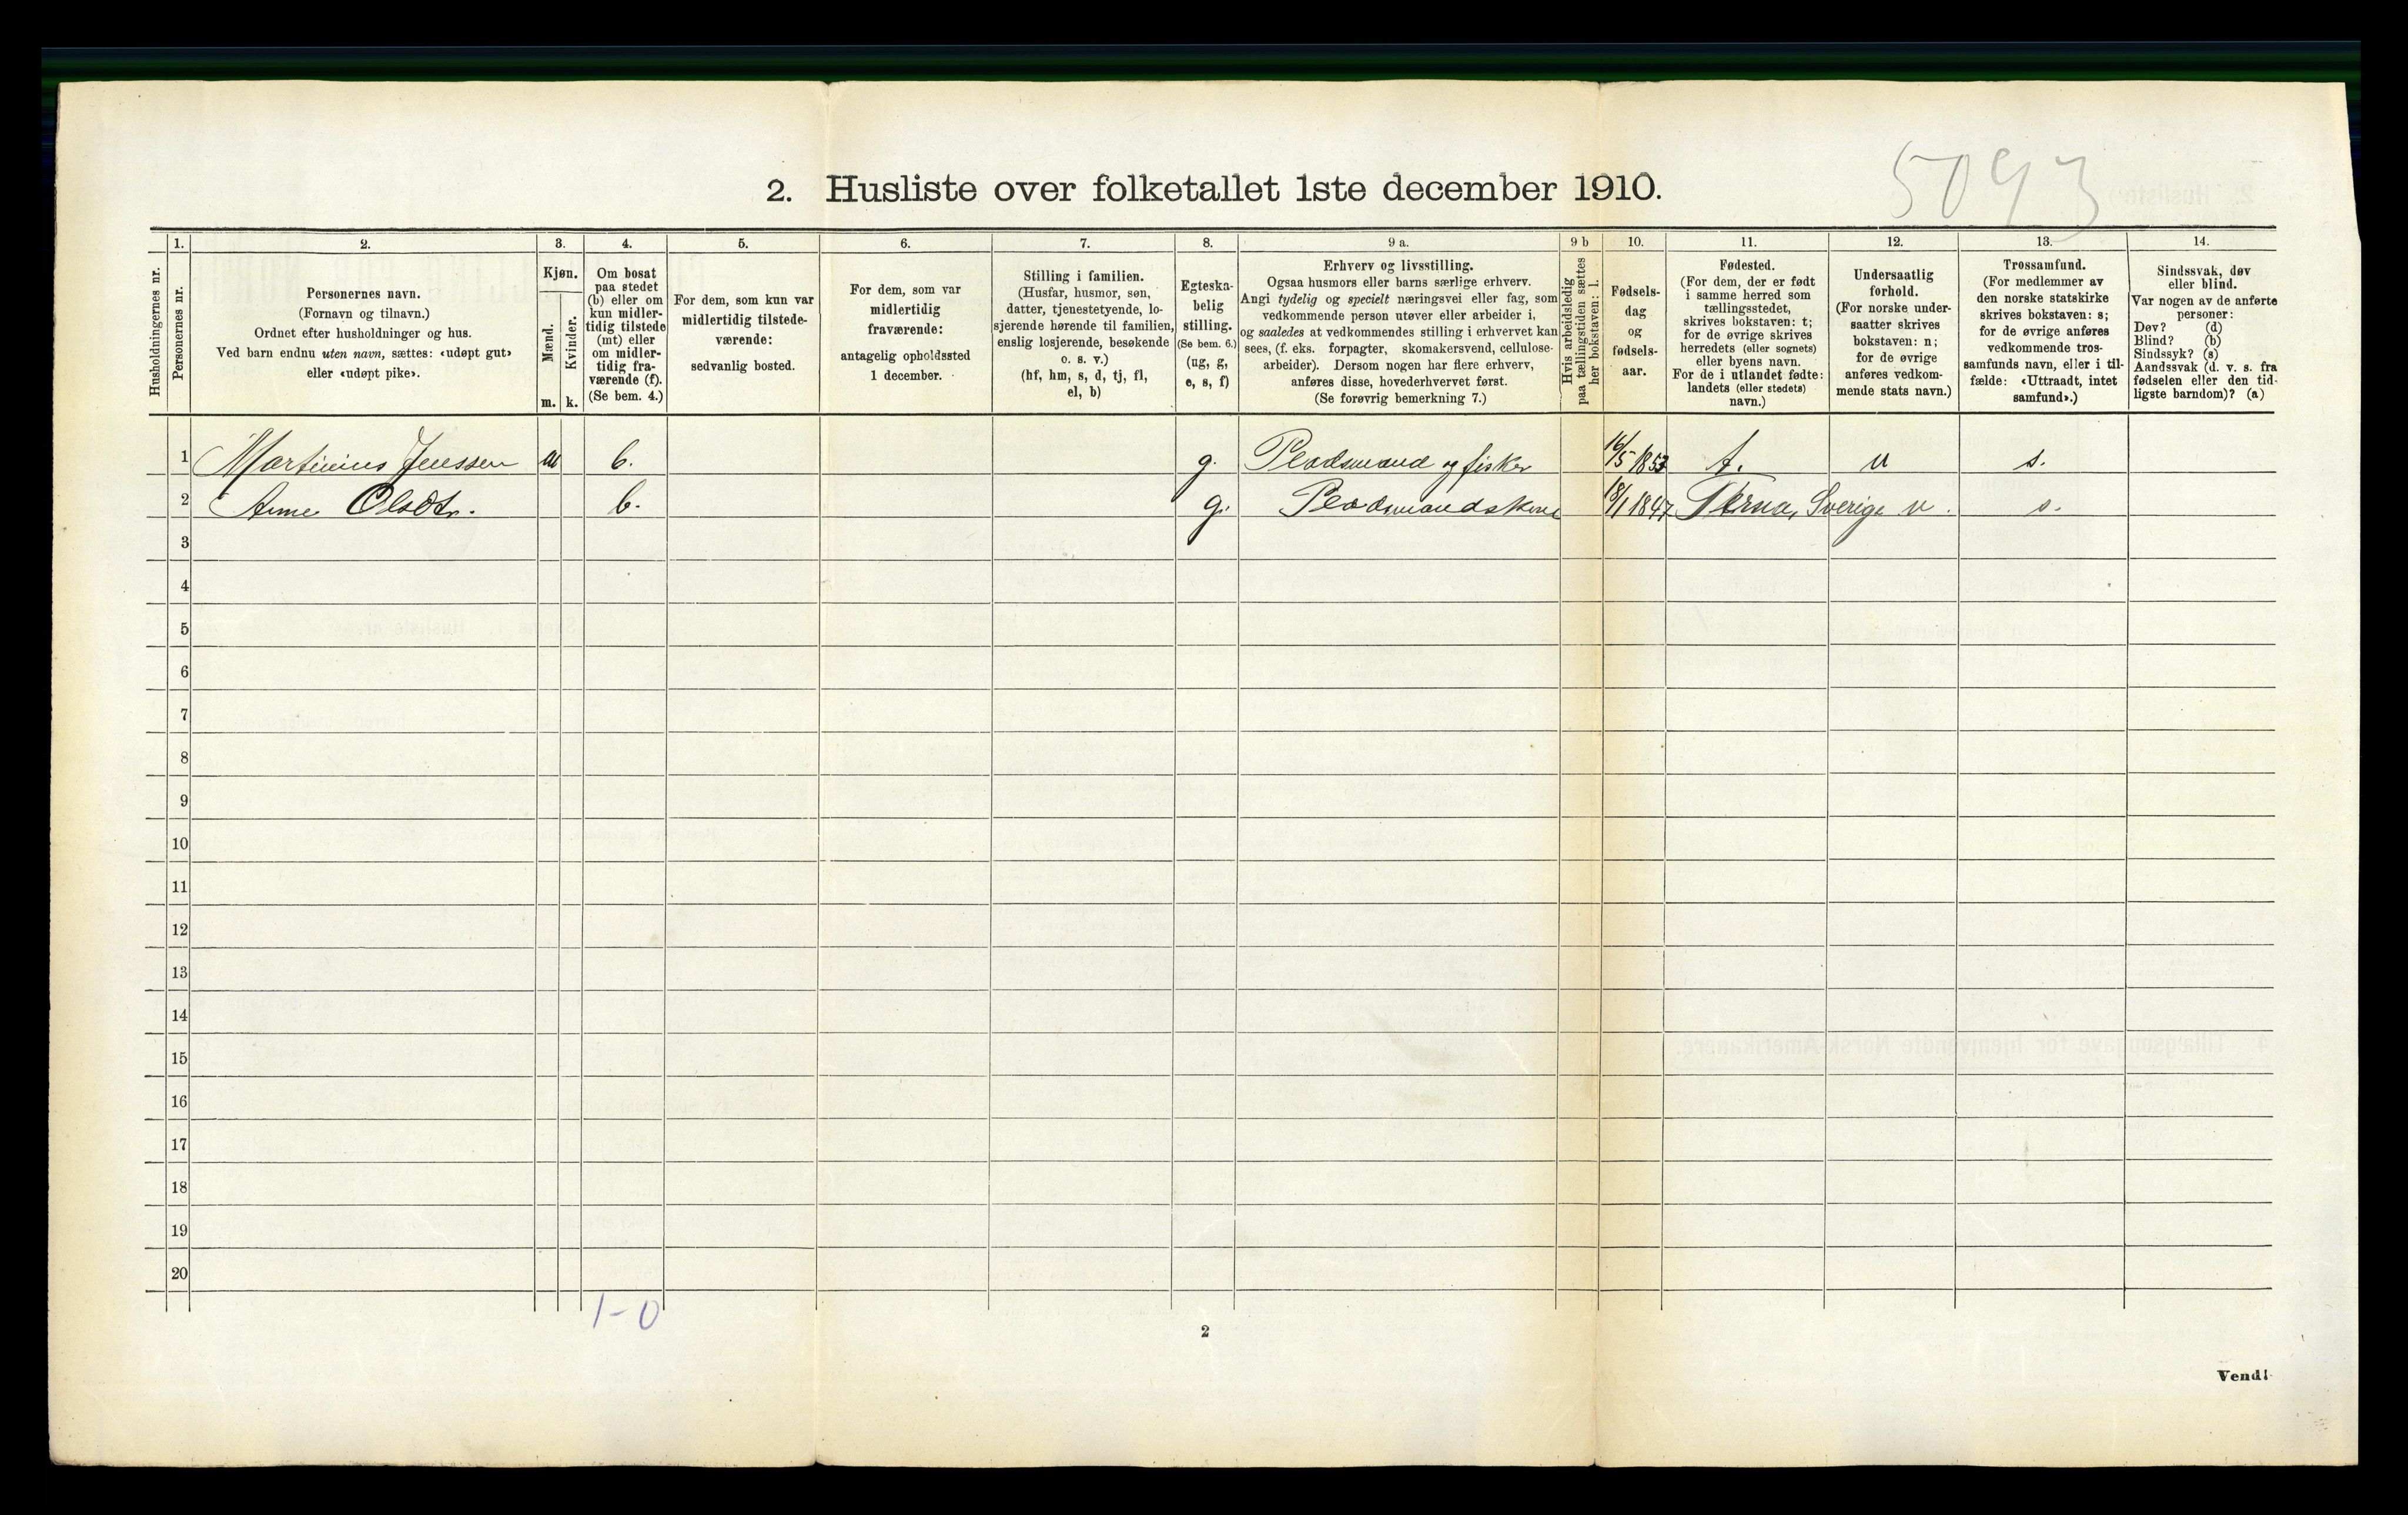 5093
2. Husliste over folketallet 1ste december 1910.
Husholdningernes nr.
1.
Personernes nr.
2.
Personernes navn.
(Fornavn og tilnavn.)
Ordnet efter husholdninger og hus.
Ved barn endnu uten navn, sættes: «udøpt gut»
eller «udøpt pike».
3.
Kjøn.
Mænd.
Kvinder.
m. k.
4.
Om bosat
paa stedet
(b) eller om
kun midler-
tidig tilstede
(mt) eller
om midler-
tidig fra-
værende (f).
(Se bem. 4.)
5.
For dem, som kun var
midlertidig tilstede-
værende:
sedvanlig bosted.
6.
For dem, som var
midlertidig
fraværende:
antagelig opholdssted
1 december.
7.
Stilling i familien.
(Husfar, husmor, søn,
datter, tjenestetyende, lo-
sjerende hørende til familien,
enslig losjerende, besøkende
o. s. v.)
(hf, hm, s, d, tj, fl,
el, b)
8.
Egteska-
belig
stilling.
(Se bem. 6.)
(ug, g,
e, s, f)
9 a.
Erhverv og livsstilling.
Ogsaa husmors eller barns særlige erhverv.
Angi tydelig og specielt næringsvei eller fag, som
vedkommende person utøver eller arbeider i,
og saaledes at vedkommendes stilling i erhvervet kan
sees, (f. eks. forpagter, skomakersvend, cellulose-
arbeider). Dersom nogen har flere erhverv,
anføres disse, hovederhvervet først.
(Se forøvrig bemerkning 7.)
9 b
Hvis arbeidsledig
paa tællingstiden sættes
her bokstaven: l.
10.
Fødsels-
dag
og
fødsels-
aar.
11.
Fødested.
(For dem, der er født
i samme herred som
tællingsstedet,
skrives bokstaven: t;
for de øvrige skrives
herredets (eller sognets)
eller byens navn.
For de i utlandet fødte:
landets (eller stedets)
navn.)
12.
Undersaatlig
forhold.
(For norske under-
saatter skrives
bokstaven: n;
for de øvrige
anføres vedkom-
mende stats navn.)
13.
Trossamfund.
(For medlemmer av
den norske statskirke
skrives bokstaven: s;
for de øvrige anføres
vedkommende tros-
samfunds navn, eller i til-
fælde: «Uttraadt, intet
samfund».)
14.
Sindssvak, døv
eller blind.
Var nogen av de anførte
personer:
Døv? (d)
Blind? (b)
Sindssyk? (s)
Aandssvak (d. v. s. fra
fødselen eller den tid-
ligste barndom)? (a)
1 Martinius Jenssen m b. g. Pladsmand og fisker 16/5 1853 t. n s.
2 Anne Olsdtr. b. g. Pladsmandskone 18/1 1847 Tærna, Sverige n. s.
3
4
5
6
7
8
9
10
11
12
13
14
15
16
17
18
19
20
1-0
2
Vend!